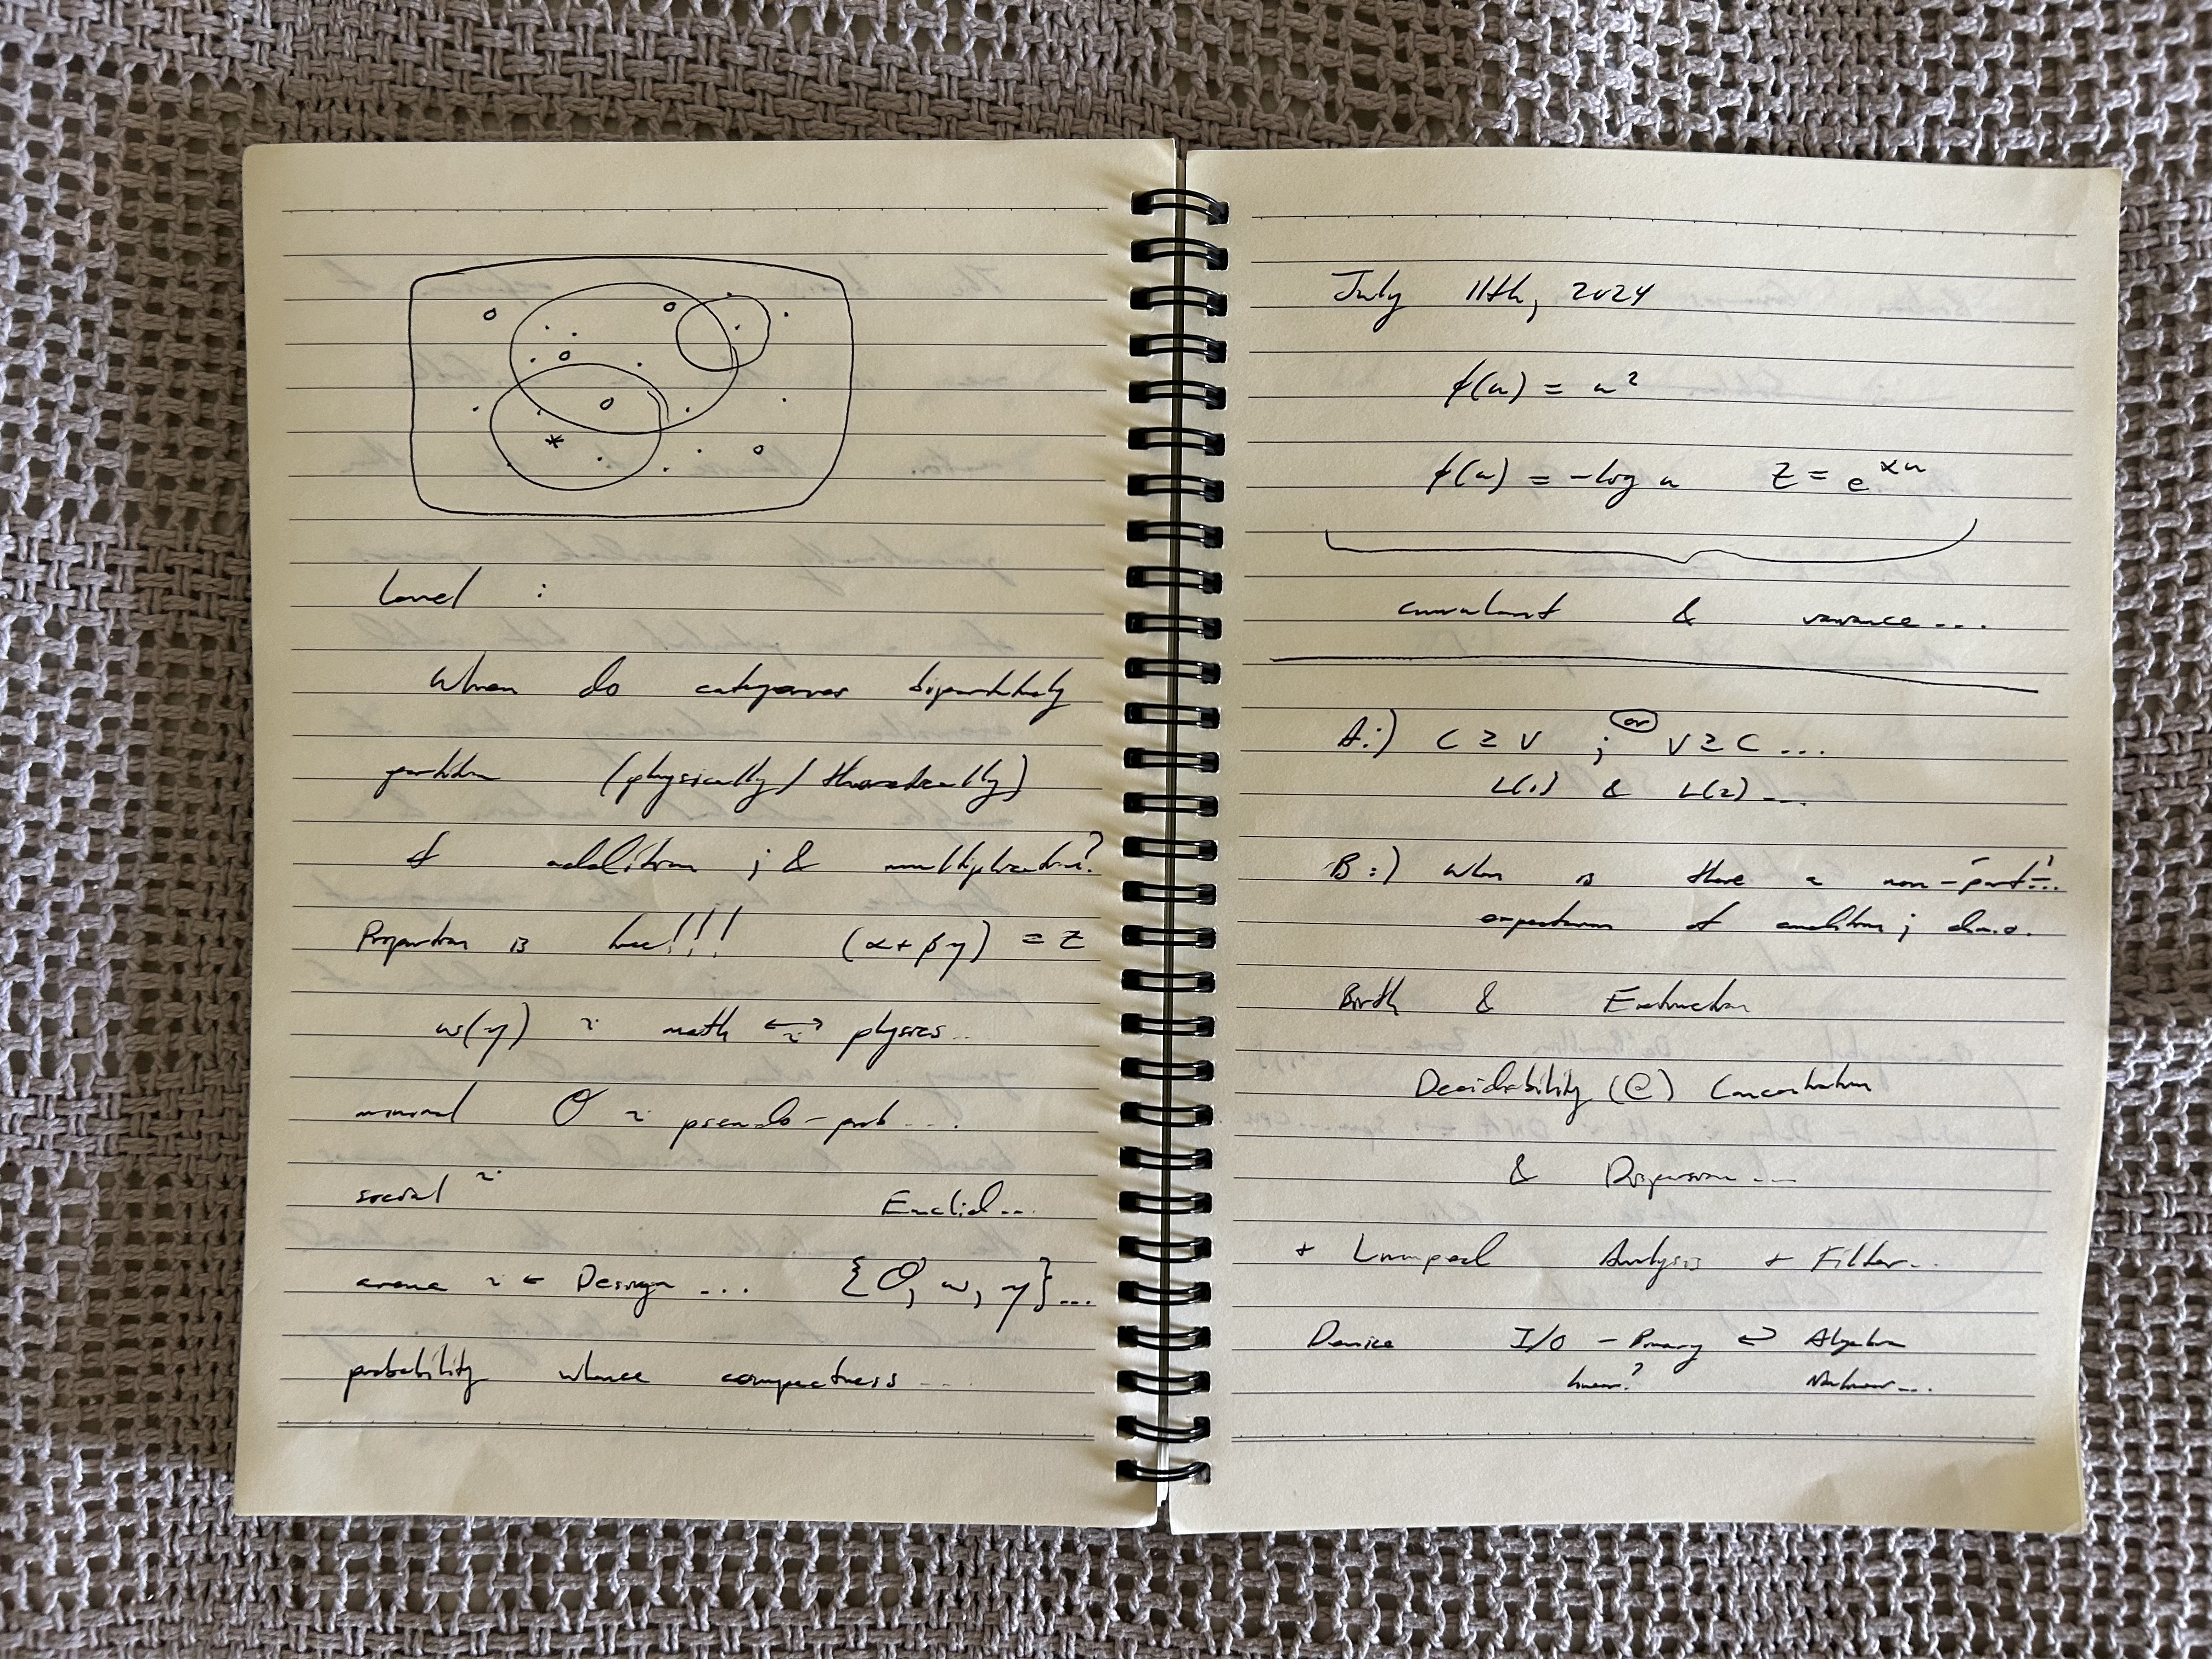 Level :
When do categories bipartitely
partition (physically/theoretically)
of addition ; & multiplication?
Proportion is here!!! (α + βy) = z
w(y) ~ math ↔ physics..
minimal O ~ pseudo-prob....
social ~ Euclid...
arena ~ ← Design ... {O, w, y}...
probability whence compactness ....
July 11th, 2024
f(u) = u²
f(u) = -log u z = e^αu
& variance...
A:) C ≥ V ; or V ≥ C ...
L(1) & L(2) ...
B:) When is there a non-part...
of addition ;
Birth & Extinction
Decidability (@) Concentration
& Dispersion...
+ Lumped Analysis + Filter...
Device I/O - Binary ↔ Algebra
linear? Nonlinear...